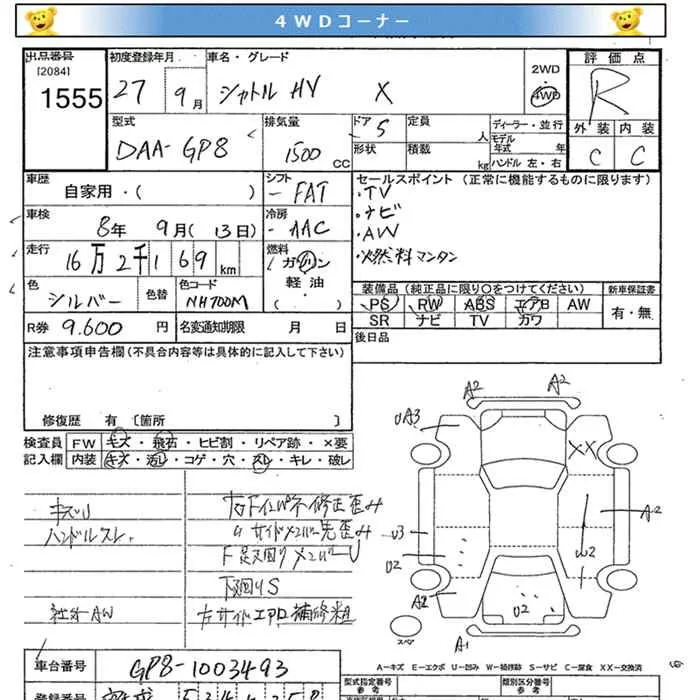 4WDコーナー
出品番号
[2084]
1555
初度登録年月
27 9月
車名・グレード
シャトル HV X
2WD
4WD
評価点
R
外装 内装
C C
型式
DAA-GP8
排気量
1500 CC
ドア 5
形状
定員 人
積載 kg
ディーラー・並行
モデル年式 年
ハンドル 左・右
車歴
自家用・( )
シフト
FAT
セールスポイント (正常に機能するものに限ります)
・TV
・ナビ
・AW
・燃料マンタン
車検
8年 9月(13日)
冷房
AAC
走行
16万2千169 km
燃料
ガソリン
軽油・
( )
色
シルバー
色替
色コード
NH700M
装備品 (純正品に限り○をつけてください)
新車保証書
PS RW ABS エアB AW
SR ナビ TV カワ
有・無
R券 9.600 円
名変通知期限 月 日
後日品
注意事項申告欄(不具合内容等は具体的に記入して下さい)
修復歴 有 〔箇所 〕
検査員 FW キズ・飛石・ヒビ割・リペア跡・×要
記入欄 内装 キズ・汚レ・コゲ・穴・スレ・キレ・破レ
キズU
ハンドルスレ
社外AW
右Fインパネ修正歪み
〃サイドメンバー先歪み
F足廻りメンバーU
下廻りS
左サイドエアロ補修粗
A2 A2
UA3
XX
A2
U3
U2
W2
A2
U2
A1
スペア
A-キズ E-エクボ U-凹み W-補修跡 S-サビ C-腐食 XX-交換済
車台番号
GP8-1003493
登録番号
型式指定番号
参考
類別区分番号
参考